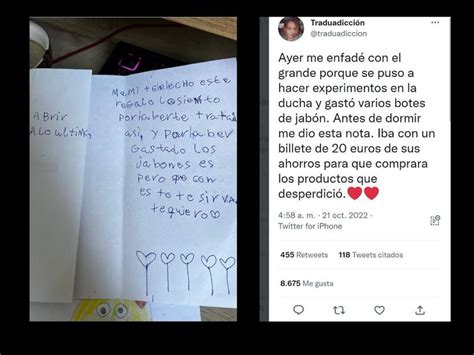 ABRIR
MAMI te HECHO este
regalo LO siento
por haberte tratado
asi, y por haber
GastaDo los
jabones es
pero que con
esto te sirva
te quiero
Traduadicción
@traduadiccion
Ayer me enfadé con el
grande porque se puso a
hacer experimentos en la
ducha y gastó varios botes
de jabón. Antes de dormir
me dio esta nota. Iba con un
billete de 20 euros de sus
ahorros para que comprara
los productos que
desperdició.❤️❤️
4:58 a. m. · 21 oct. 2022 ·
Twitter for iPhone
455 Retweets 118 Tweets citados
8.675 Me gusta